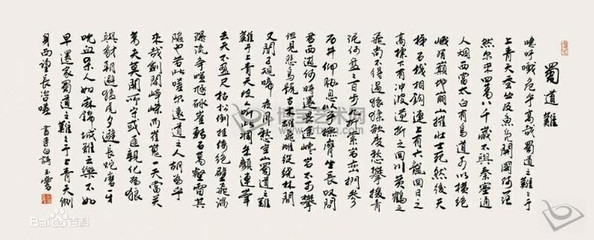 蜀道難
噫吁嚱危乎高哉蜀道之難難于
上青天蠶叢及魚鳧開國何茫
然爾來四萬八千歲不與秦塞通
人烟西當太白有鳥道可以橫絕
峨眉巔地崩山摧壯士死然後天
梯石棧相鉤連上有六龍回日之
高標下有冲波逆折之回川黃鶴之
飛尚不得過猿猱欲度愁攀援青
泥何盤盤百步九折縈岩巒捫參
歷井仰脅息以手撫膺坐長嘆問
君西遊何時還畏途巉岩不可攀
但見悲鳥號古木雄飛雌從繞林間
又聞子規啼夜月愁空山蜀道之難
難于上青天使人聽此凋朱顏連峰
去天不盈尺枯松倒挂倚絕壁飛湍
瀑流爭喧豗砯崖轉石萬壑雷其
險也若此嗟爾遠道之人胡為乎
來哉劍閣崢嶸而崔嵬一夫當關
萬夫莫開所守或匪親化為狼
與豺朝避猛虎夕避長蛇磨牙
吮血殺人如麻錦城雖云樂不如
早還家蜀道之難難于上青天側
身西望長咨嗟 書李白詩
Bai百科